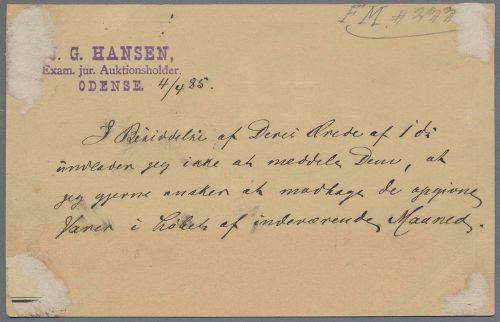 FM # 272
J. G. HANSEN,
Exam. jur. Auktionsholder.
ODENSE. 4/4 85.
I Besiddelse af Deres Ærede af 1 ds
undlader jeg ikke at meddele Dem, at
jeg gjerne ønsker at modtage de opgivne
Varer i Løbet af indeværende Maaned.